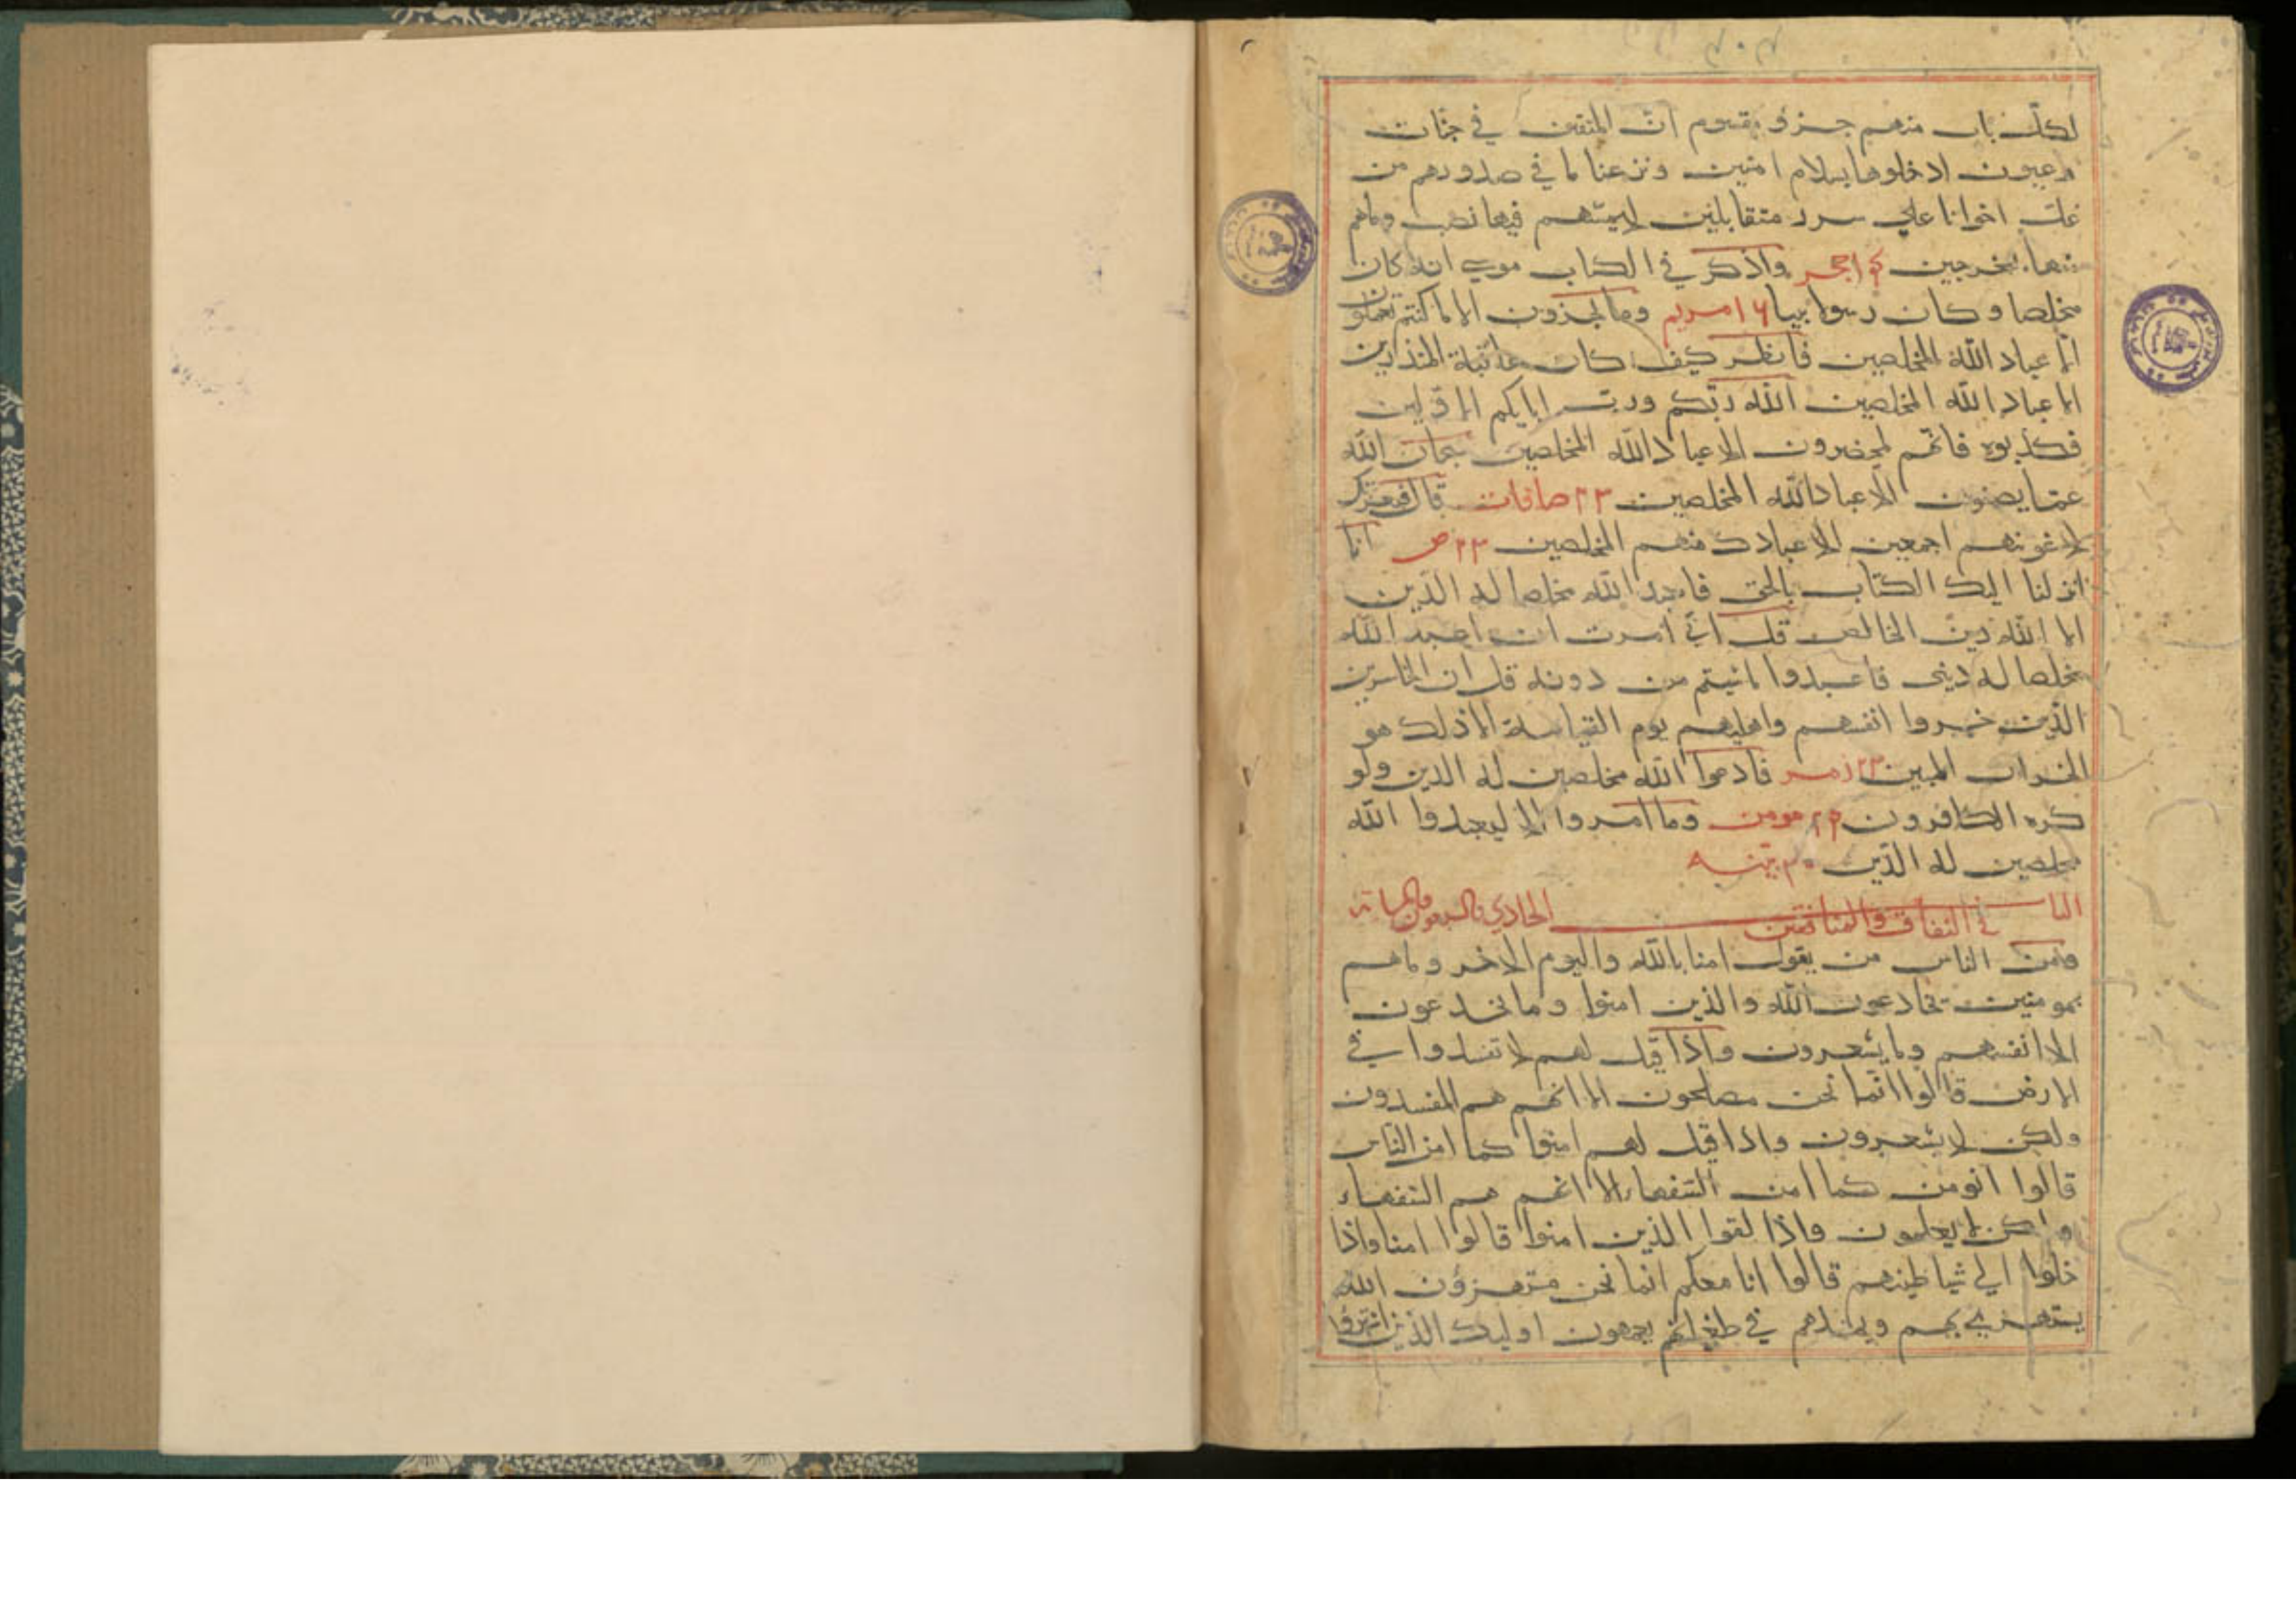 لكل باب منهم جزؤ مقسوم ان المتقين في جنات
وعيون ادخلوها بسلام امنين ونزعنا ما في صدورهم من
غل اخوانا على سرر متقابلين لايمسهم فيها نصب وماهم
منها بمخرجين حجر واذكر في الكتاب موسى انه كان
مخلصا وكان رسولا نبيا ١٦ مريم وما تجزون الا ما كنتم تعملون
الا عباد الله المخلصين فانظر كيف كان عاقبة المنذرين
الا عباد الله المخلصين الله ربكم ورب ابايكم الاولين
فكذبوه فانهم لمحضرون الا عباد الله المخلصين سبحان الله
عما يصفون الا عباد الله المخلصين ٢٣ صافات قال فبعزتك
لاغوينهم اجمعين الا عبادك منهم المخلصين ٢٣ ص انا
انزلنا اليك الكتاب بالحق فاعبد الله مخلصا له الدين
الا لله دين الخالص قل اني امرت ان اعبد الله
مخلصا له ديني فاعبدوا ماشيتم من دونه قل ان الخاسرين
الذين خسروا انفسهم واهليهم يوم القيامة الا ذلك هو
الخسران المبين ٢٣ زمر فادعوا الله مخلصين له الدين ولو
كره الكافرون ٢٤ مومن وما امروا الا ليعبدوا الله
مخلصين له الدين ٣٠ بينه
الباب الحادي والسبعون والمائة في النفاق والمنافقين
ومن الناس من يقول امنا بالله واليوم الاخر وماهم
بمومنين يخادعون الله والذين امنوا وما يخدعون
الا انفسهم وما يشعرون واذا قيل لهم لا تفسدوا في
الارض قالوا انما نحن مصلحون الا انهم هم المفسدون
ولكن لا يشعرون واذا قيل لهم امنوا كما امن الناس
قالوا انومن كما امن السفهاء الا انهم هم السفهاء
ولكن لا يعلمون واذا لقوا الذين امنوا قالوا امنا واذا
خلوا الى شياطينهم قالوا انا معكم انما نحن مستهزؤن الله
يستهزئ بهم ويمدهم في طغيانهم يعمهون اوليك الذين اشتروا